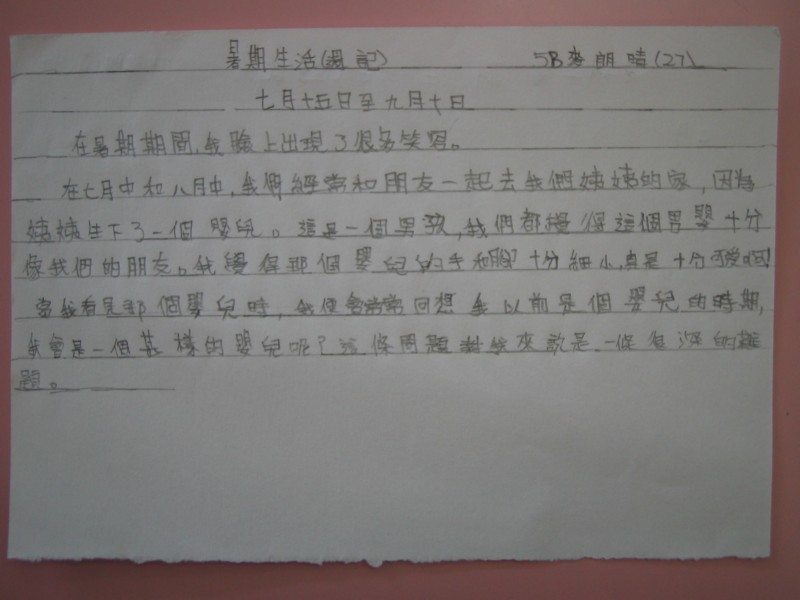 暑期生活(週記) 5B麥朗晴(27)
七月十五日至九月十日
在暑期期間,我臉上出現了很多笑容。
在七月中和八月中,我們經常和朋友一起去我們姨姨的家,因為
姨姨生下了一個嬰兒。這是一個男孩,我們都覺得這個男嬰十分
像我們的朋友。我覺得那個嬰兒的手和腳十分細小,真是十分可愛啊!
當我看見那個嬰兒時,我便會常常回想我以前是個嬰兒的時期,
我會是一個甚樣的嬰兒呢?這條問題對我來說是一條很深的難
題。